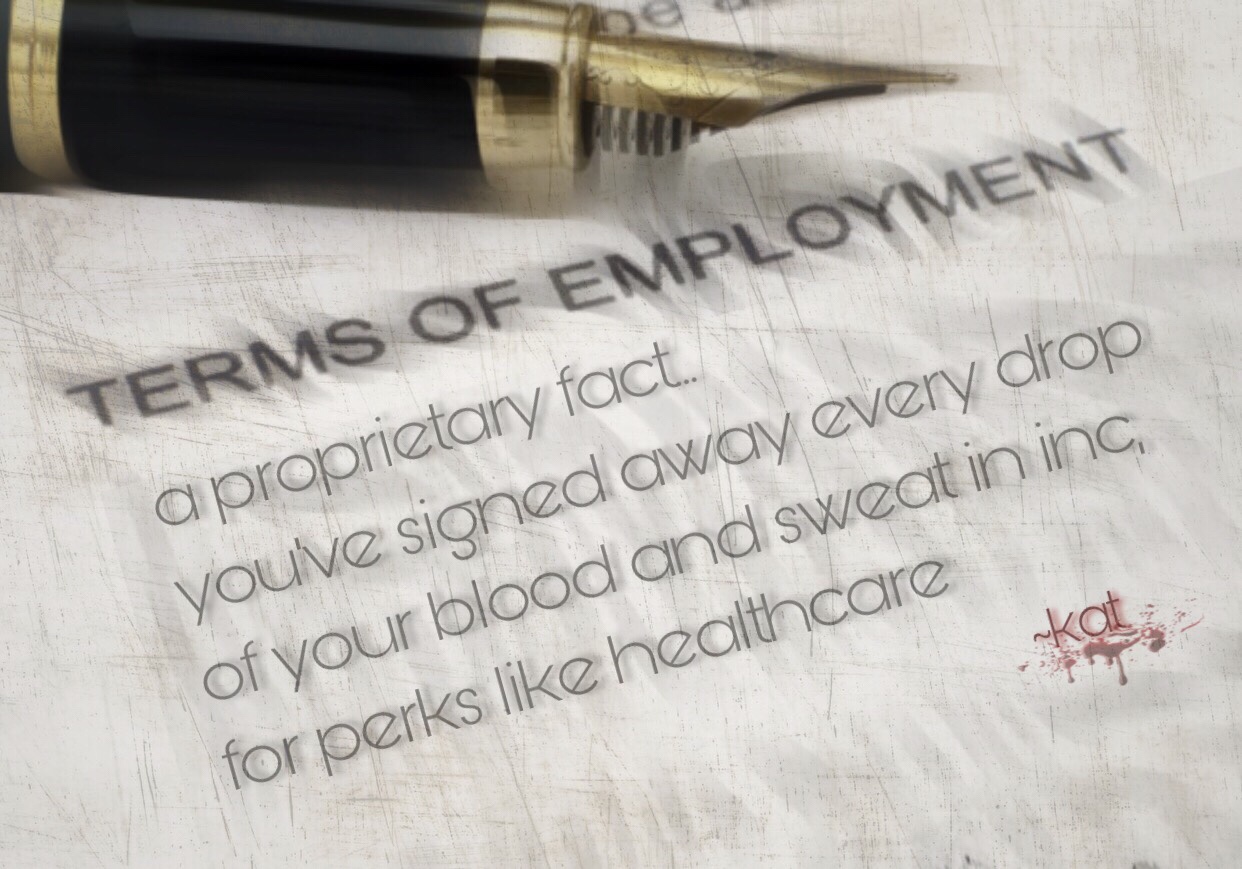 TERMS OF EMPLOYMENT
a proprietary fact...
you've signed away every drop
of your blood and sweat in inc,
for perks like healthcare
~kat